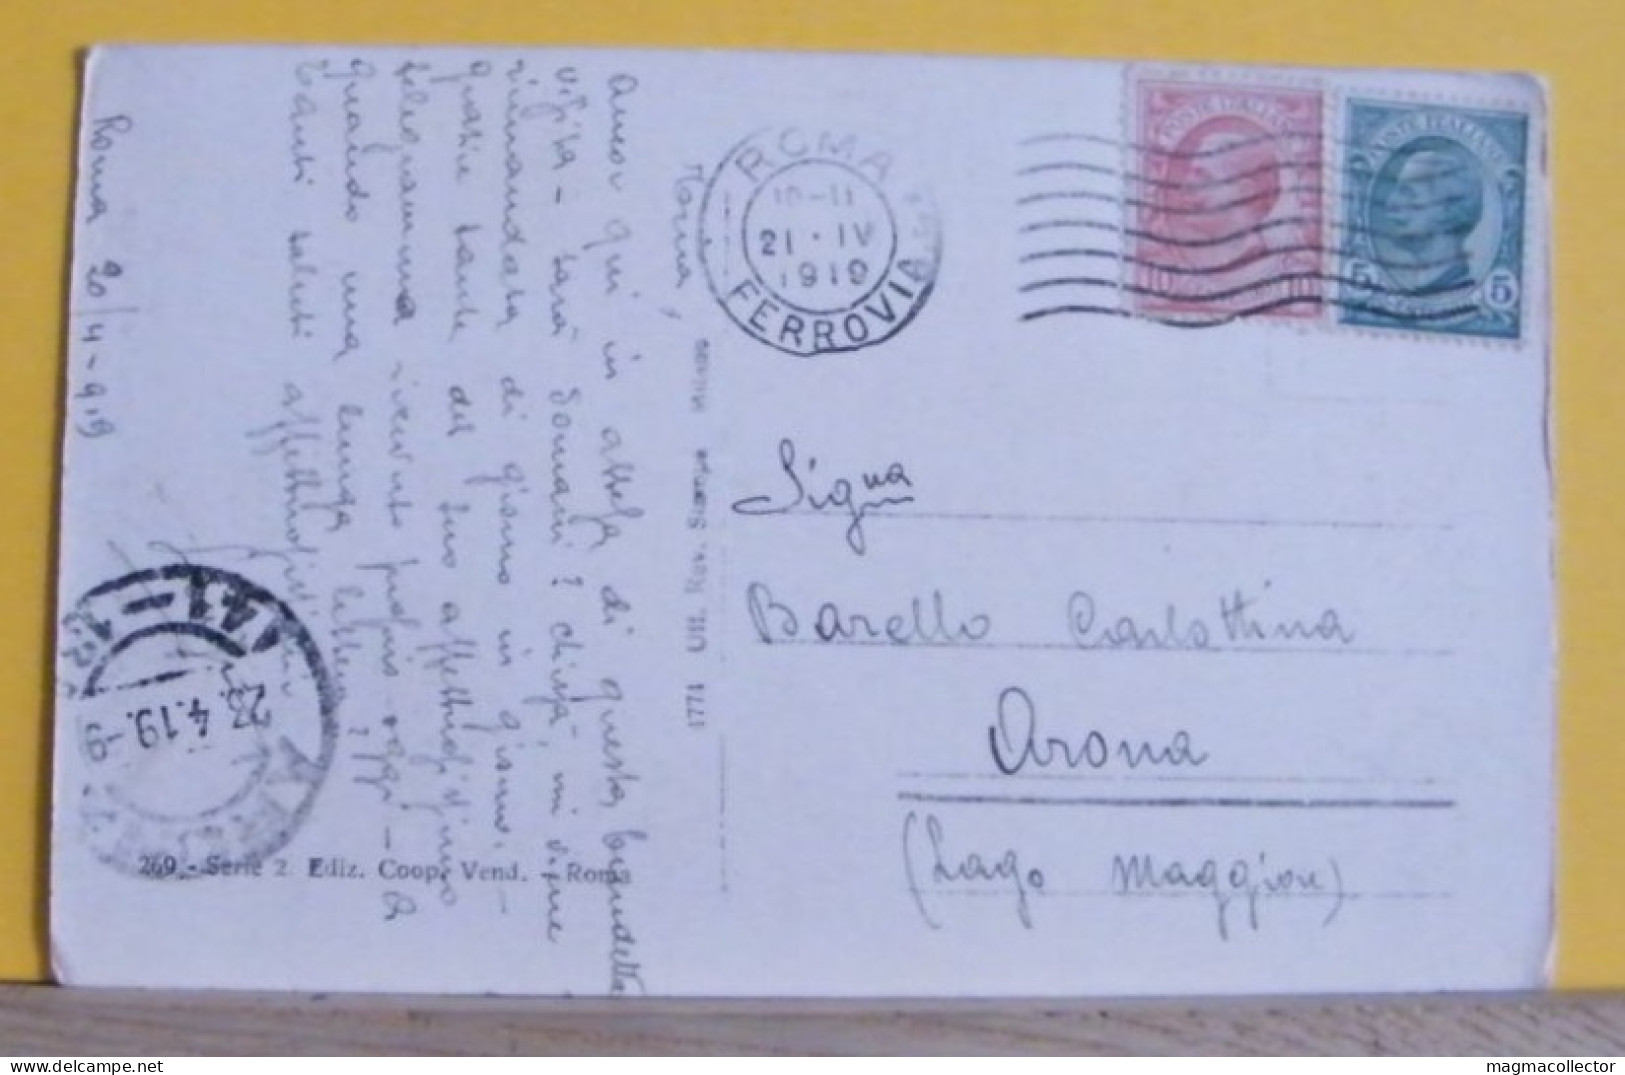 Roma 20/4-919
Norina,
Ancor qui in attesa di questa benedetta
visita - sarà domani? chissà, mi viene
rimandata di giorno in giorno. -
Grazie tante del tuo affettuos.mo
telegramma ricevuto oggi - A
quando una lunga lettera??
Tanti saluti affettuosissimi
ROMA
FERROVIA
10-11
21 · IV
1919
POSTE ITALIANE
10 10
POSTE ITALIANE
5 5
Signa
Barello Carlottina
Arona
(Lago Maggiore)
1771 Uff. Rev. Stampa Milano
23.4.19.
269. - Serie 2 Ediz. Coop. Vend. - Roma
magmacollector